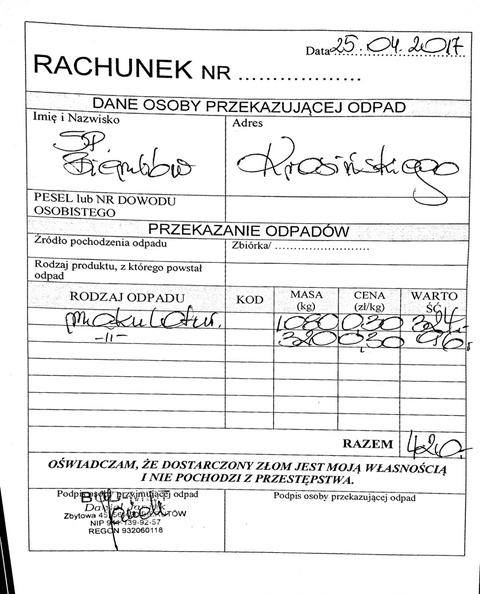 Data 25.04.2017
RACHUNEK NR ..................
DANE OSOBY PRZEKAZUJĄCEJ ODPAD
Imię i Nazwisko
Adres
SP
Krasińskiego
PESEL lub NR DOWODU
OSOBISTEGO
PRZEKAZANIE ODPADÓW
Źródło pochodzenia odpadu
Zbiórka/ ..........................
Rodzaj produktu, z którego powstał
odpad
RODZAJ ODPADU KOD MASA (kg) CENA (zł/kg) WARTO ŚĆ
makulatur. 1080 0,30 324,-
-11- 320 0,30 96,
RAZEM 420,-
OŚWIADCZAM, ŻE DOSTARCZONY ZŁOM JEST MOJĄ WŁASNOŚCIĄ
I NIE POCHODZI Z PRZESTĘPSTWA.
Podpis osoby przyjmującej odpad
Podpis osoby przekazującej odpad
Zbytowa
NIP
REGON 932060118